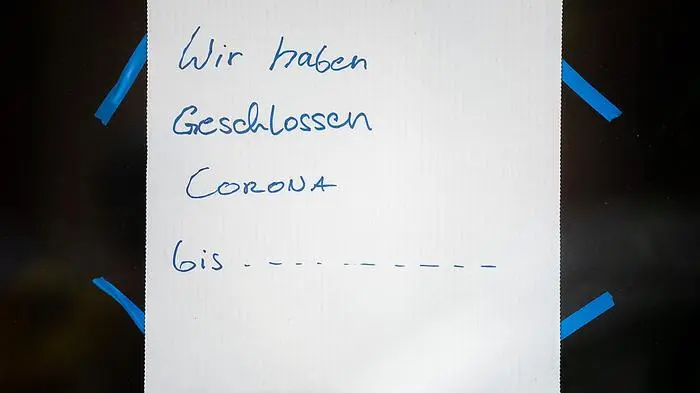 Wir haben
Geschlossen
CORONA
bis . - - - - - - - - -